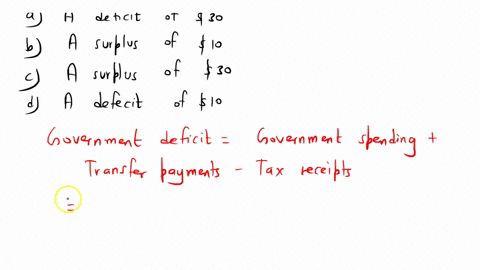 a) A deficit of $30
b) A surplus of $10
c) A surplus of $30
d) A defecit of $10
Government deficit = Government spending +
Transfer payments - Tax receipts
=